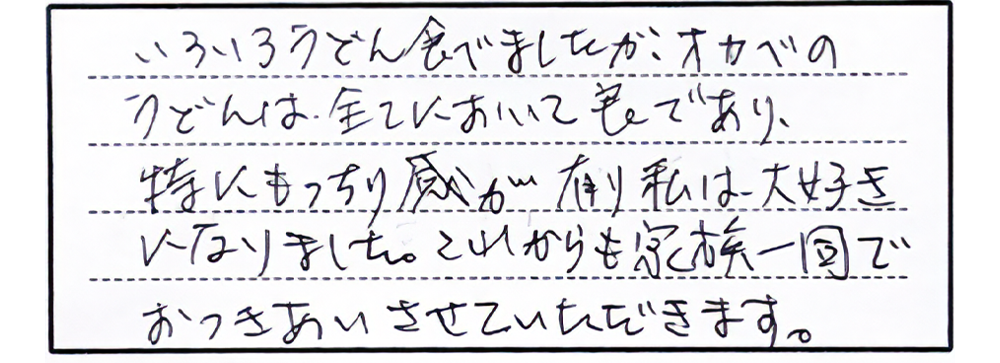 いろいろうどん食べましたが、オカベの
うどんは、全てにおいて良であり、
特にもっちり感が有り私は、大好き
になりました。これからも家族一同で
おつきあいさせていただきます。